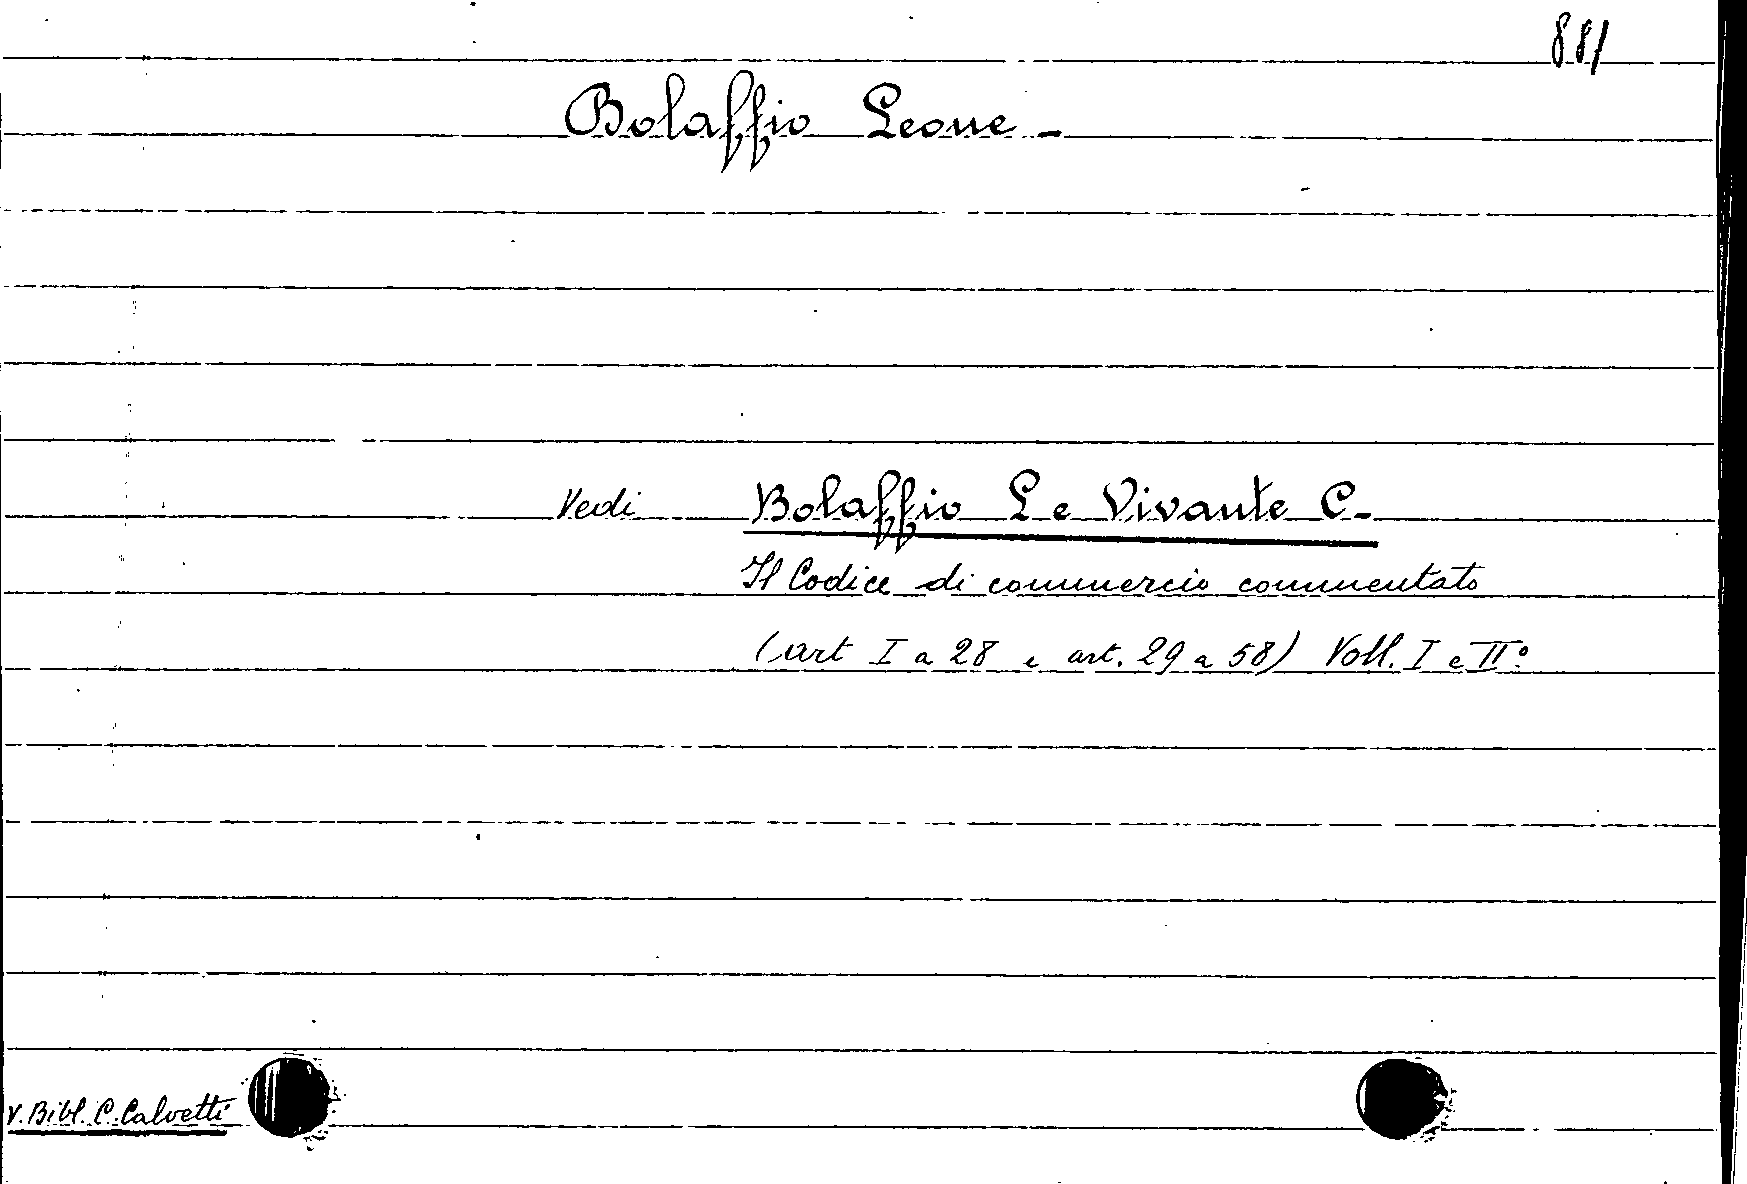 881
Bolaffio Leone -
Vedi Bolaffio L e Vivante C-
Il Codice di commercio commentato
(art I a 28 e art. 29 a 58) Voll. I e IIº
V. Bibl. C. Calvetti